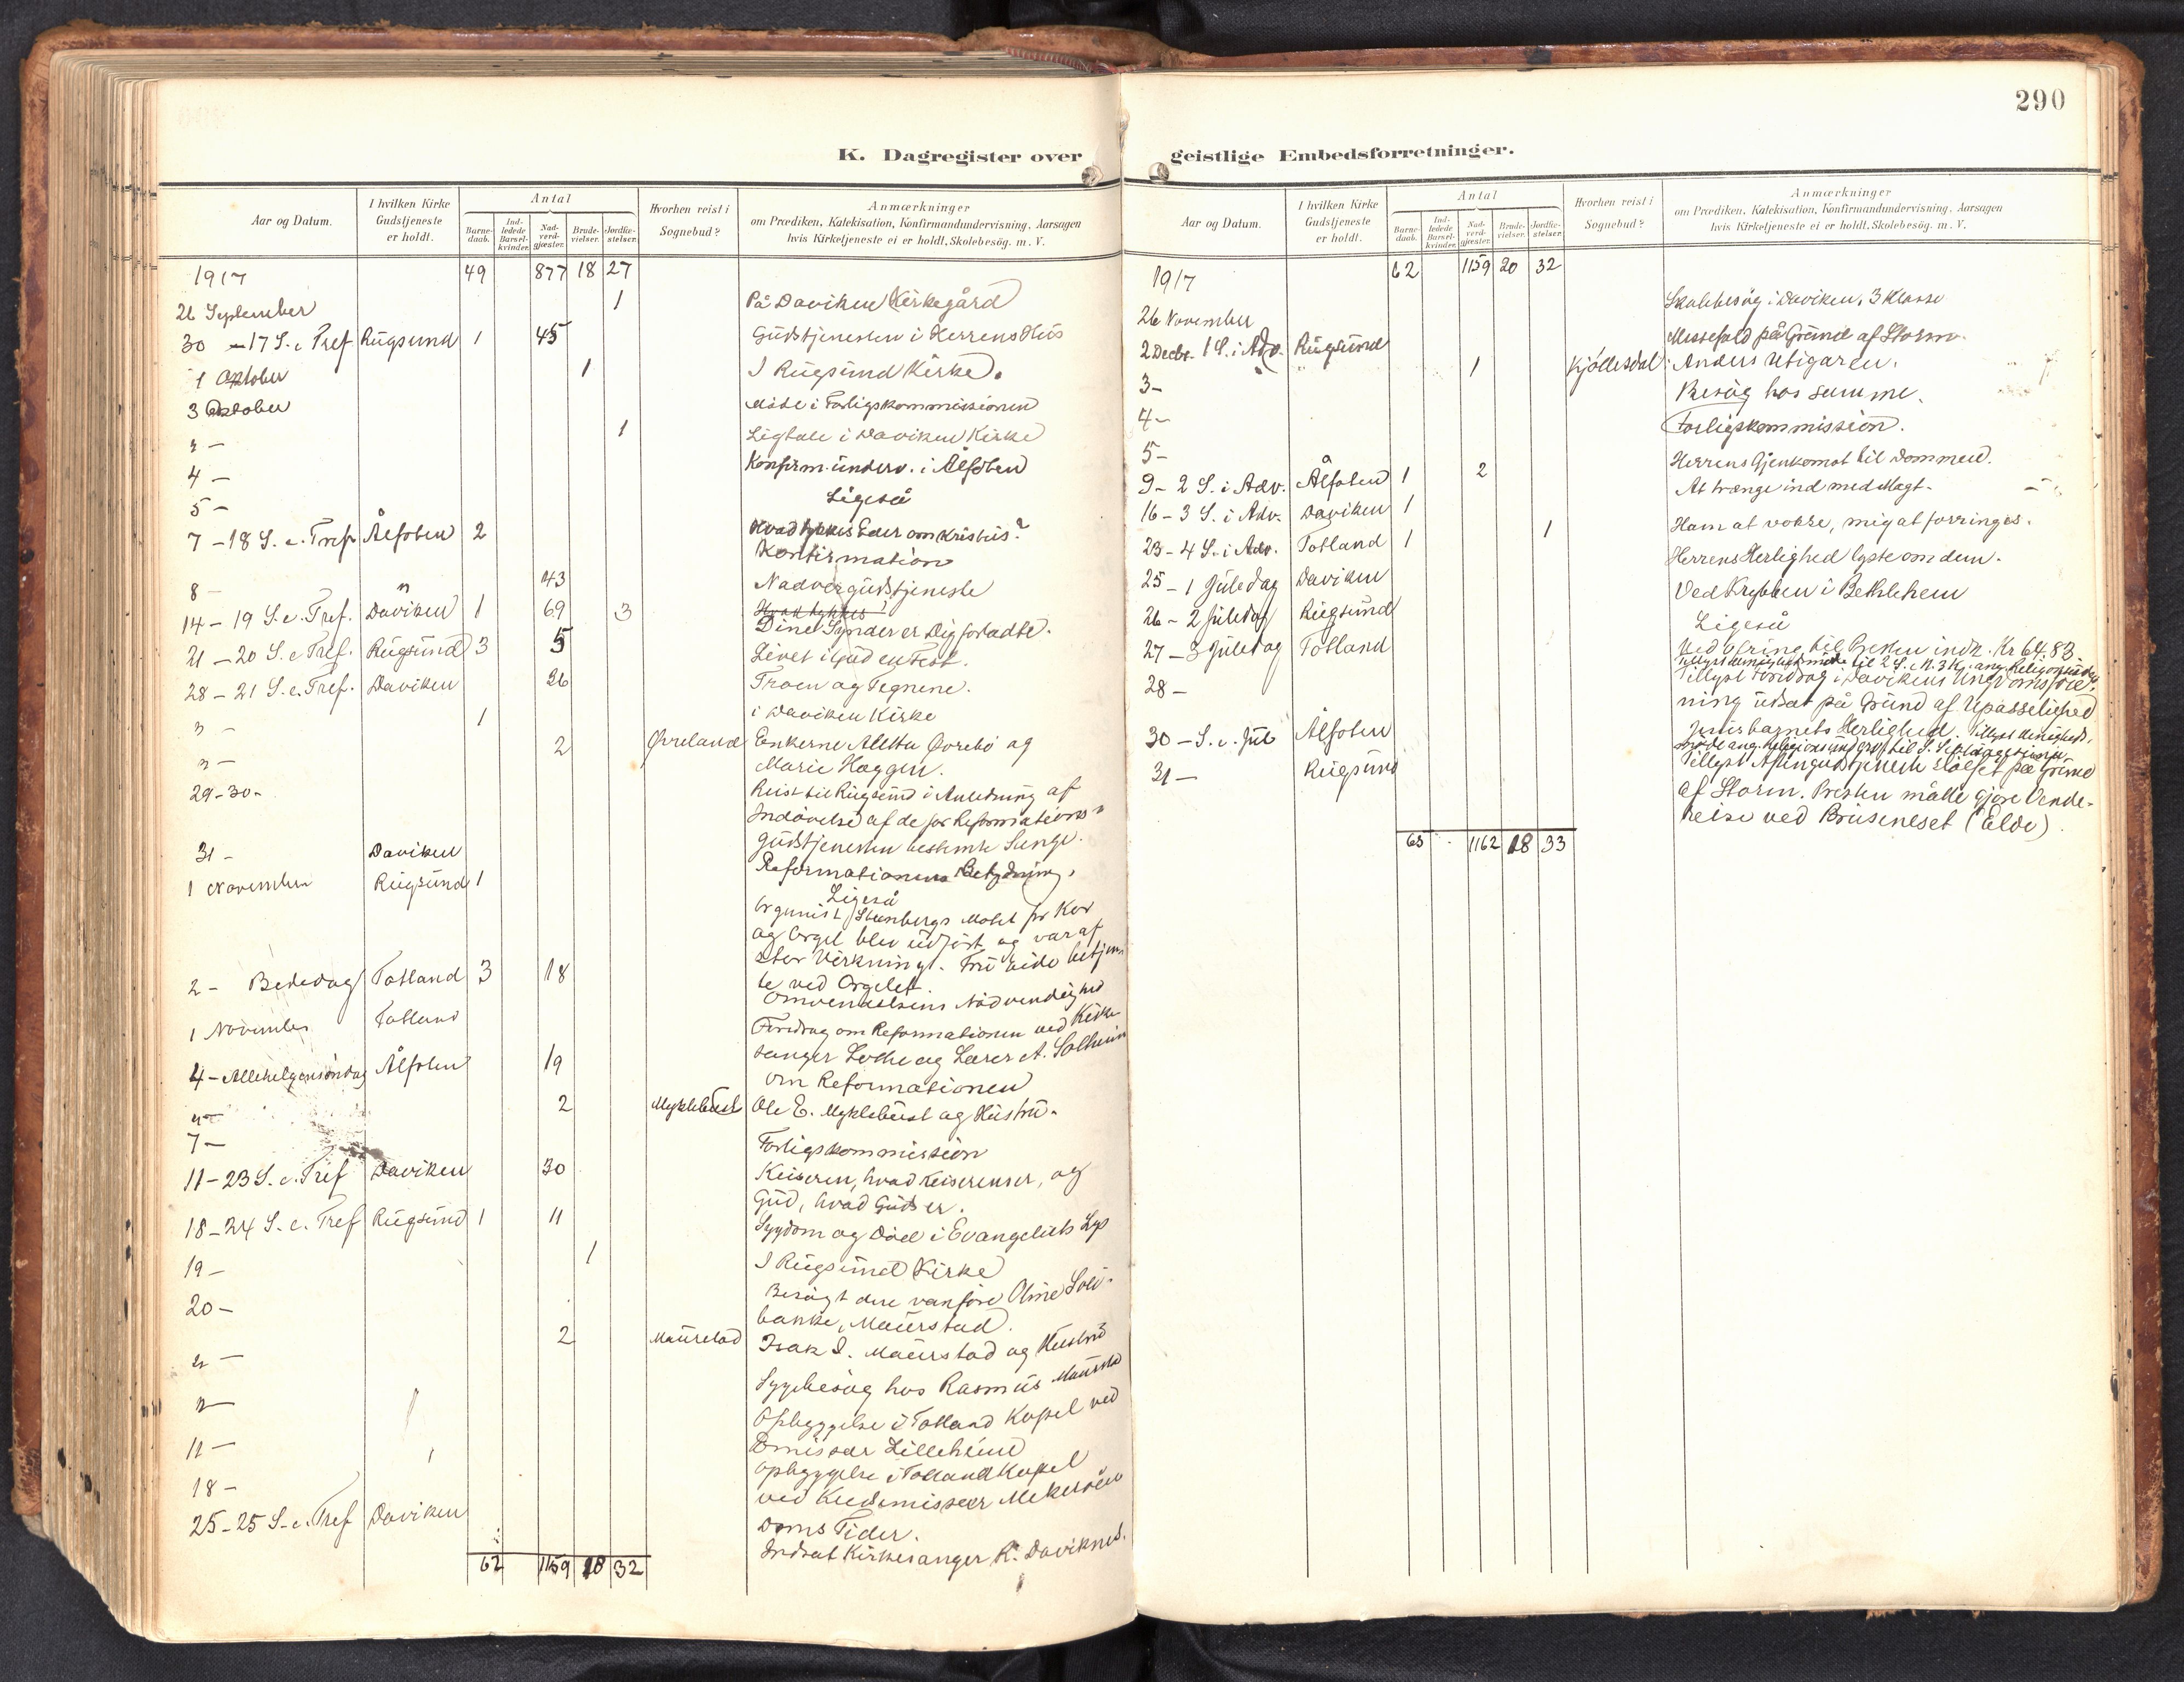 K. Dagregister over
Aar og Datum.
I hvilken Kirke Gudstjeneste er holdt.
Antal
Barne-daab.
Ind-ledede Barsel-kvinder.
Nad-verd-gjæster.
Brude-vielser.
Jordfæ-stelser.
Hvorhen reist i Sognebud?
Anmærkninger
om Prædiken, Katekisation, Konfirmandundervisning, Aarsagen
hvis Kirketjeneste ei er holdt, Skolebesög. m. V.
1917 49 877 18 27
26 September 1 På Daviken Kirkegård
30 - 17 S. e. Tref Rugsund 1 45 Gudstjenesten i Herrens Hus
1 Oktober 1 I Rugsund Kirke.
3 Oktober Möde i Forligskommissionen
" - 1 Ligtale i Daviken Kirke
4 - Konfirm.underv. i Ålfoten
5 - Ligeså
7 - 18 S. e. Tref Ålfoten 2 Hvad tykkes Eder om Kristus?
Konfirmation
8 - " 43 Nadvergudstjeneste
14 - 19 S. e. Tref. Daviken 1 69 3 Hvad tykkes
Dine Synder er Dig forladte.
21 - 20 S. e Tref. Rugsund 3 5 Livet i Gud en Fest.
28 - 21 S. e. Tref. Daviken 26 Troen og Tegnene.
" - 1 i Daviken Kirke
" - 2 Øvreland Enkerne Aletta Øvrebö og
Marie Haggen.
29-30- Reist til Rugsund i Anledning af
Indövelse af de for Reformations
gudstjenesten bestemte Sange.
31 - Daviken Reformationens Betydning.
1 November Rugsund 1 Ligeså
Organist Steenbergs Motet for Kor
og Orgel blev udfört og var af
stor Virkning. Fru Eide betjen-
te ved Orgelet.
2 - Bededag Totland 3 18 Omvendelsens Nödvendighed
1 November Totland Foredrag om Reformationen ved Kirke
sanger Lothe og Lærer A. Solheim
4 - Allehelgensöndag Ålfoten 19 Om Reformationen
" - 2 Myklebust Ole E. Myklebust og Hustru.
7 - Forligskommission
11 - 23 S. e. Tref Daviken 30 Keiseren, hvad Keiserens er, og
Gud, hvad Guds er.
18 - 24 S. e. Tref Rugsund 1 11 Sygdom og Död i Evangeliets Lys
19 - 1 I Rugsund Kirke
20 - Besögt den vanföre Oline
banke, Maurstad.
" - 2 Maurstad Isak I. Maurstad og Hustru
" - Sygebesög hos Rasmus Maurstad
11 - Opbyggelse i Totland Kapel ved
Emissær Lilleheim
18 - Opbyggelse i Totland Kapel
ved
25 - 25 S. e. Tref Daviken Doms Tider.
Indsat Kirkesanger R. Daviknes.
62 1159 18 32
290
geistlige Embedsforretninger.
Aar og Datum.
I hvilken Kirke Gudstjeneste er holdt.
Antal
Barne-daab.
Ind-ledede Barsel-kvinder.
Nad-verd-gjæster.
Brude-vielser.
Jordfæ-stelser.
Hvorhen reist i Sognebud?
Anmærkninger
om Prædiken, Katekisation, Konfirmandundervisning, Aarsagen
hvis Kirketjeneste ei er holdt, Skolebesög. m. V.
1917 62 1159 20 32
26 November Skolebesög i Daviken, 3 Klasse
2 Decbr. 1 S. i Adv. Rugsund Messefald på Grund af Storm.
3 - 1 Kjöllesdal Anders Utigaren.
4 - Besög hos samme.
5 - Forligskommission.
9 - 2 S. i Adv. Ålfoten 1 2 Herrens Gjenkomst til Dommen.
16 - 3 S. i Adv. Daviken 1 At trænge ind med Magt.
23 - 4 S. i Adv. Totland 1 1 Ham at vokse, mig at forringes.
25 - 1 Juledag Daviken Herrens Herlighed lyste om dem.
26 - 2 Juledag Rugsund Ved Krybben i Bethlehem
27 - 3 Juledag Totland Ligeså
Ved Ofring til Preken indk. Kr 64.83
28 - Tillyst Foredrag i Davikens Ungdomsfore-
ning udsat på Grund af Upasselighed
30 - S. e. Jul Ålfoten Julebarnets Herlighed. Tillyst Menigheds-
31 - Rugsund Tillyst Aftengudstjeneste aflyst på Grund
af Storm. Presten måtte gjöre Vende-
reise ved Bruseneset (Elde).
65 1162 18 33